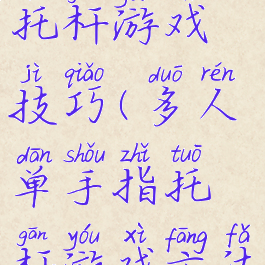 托杆游戏
jì qiǎo duō rén
技巧(多人
dān shǒu zhǐ tuō
单手指托
gān yóu xì fāng fǎ
杆游戏方法